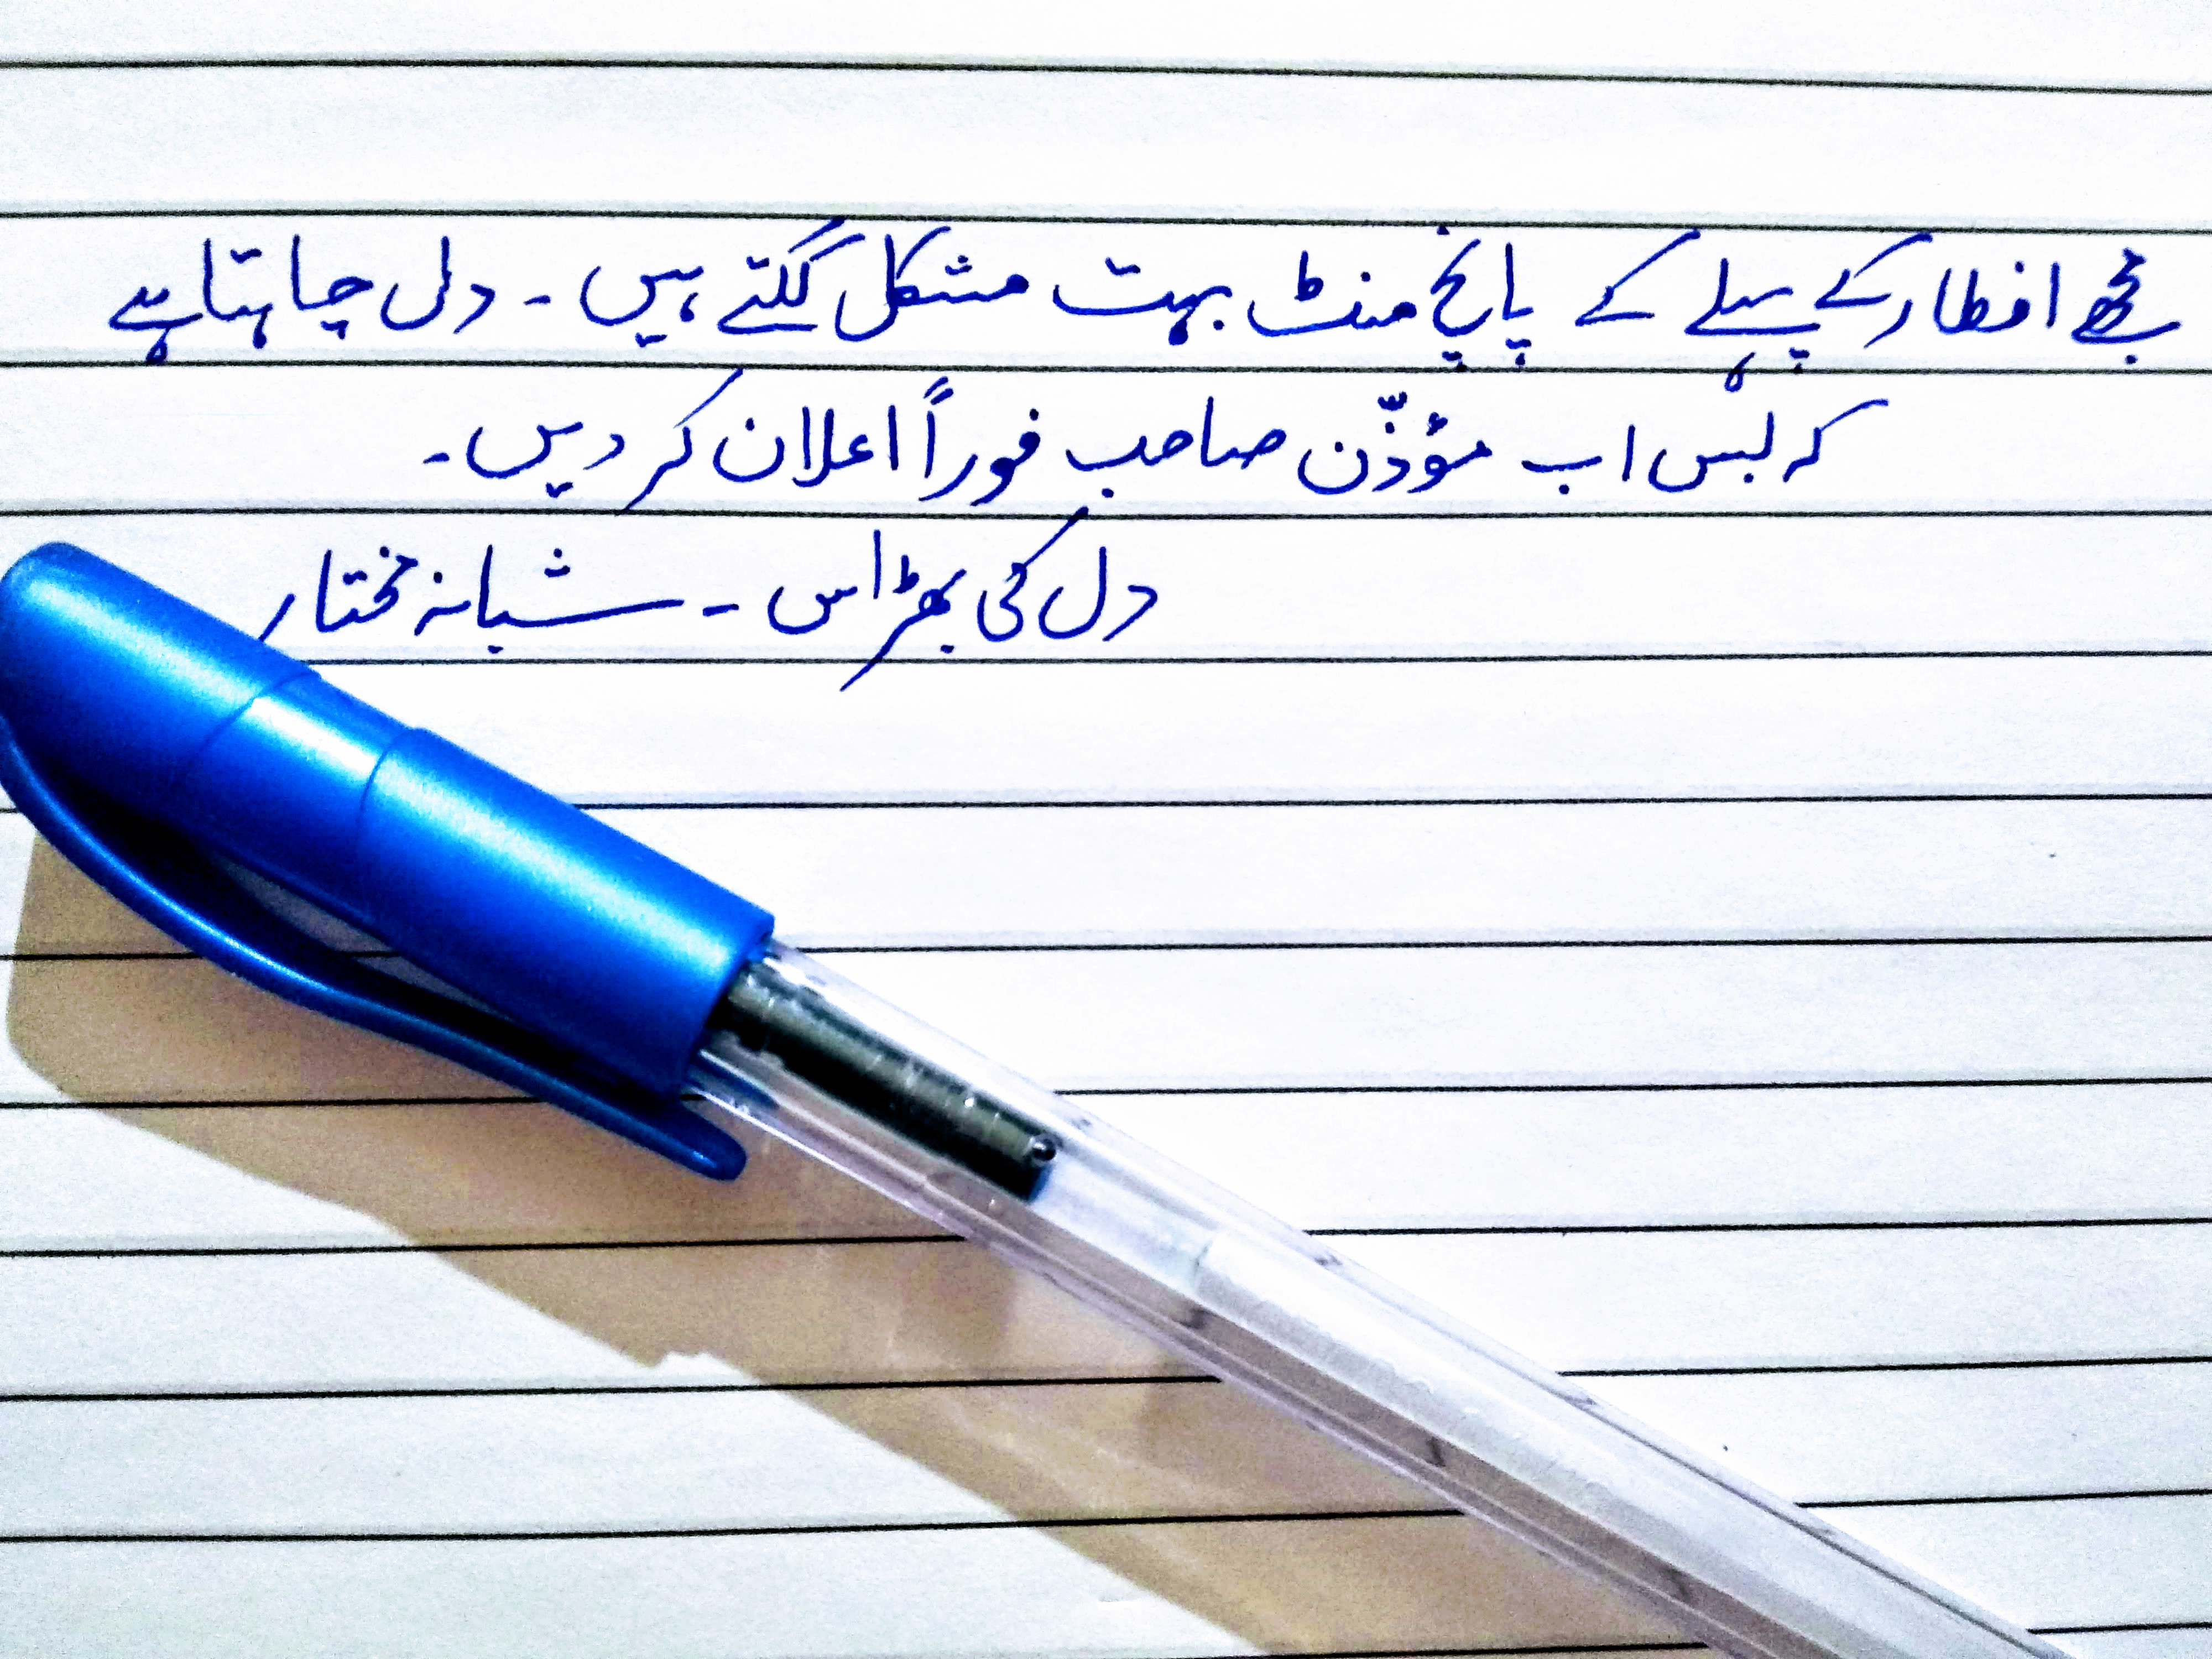 مجھے افطار کے پہلے کے پانچ منٹ بہت مشکل لگتے ہیں ۔ دل چاہتا ہے
کہ بس اب مؤذّن صاحب فوراً اعلان کر دیں ۔
دل کی بھڑاس ۔ شبانہ مختار